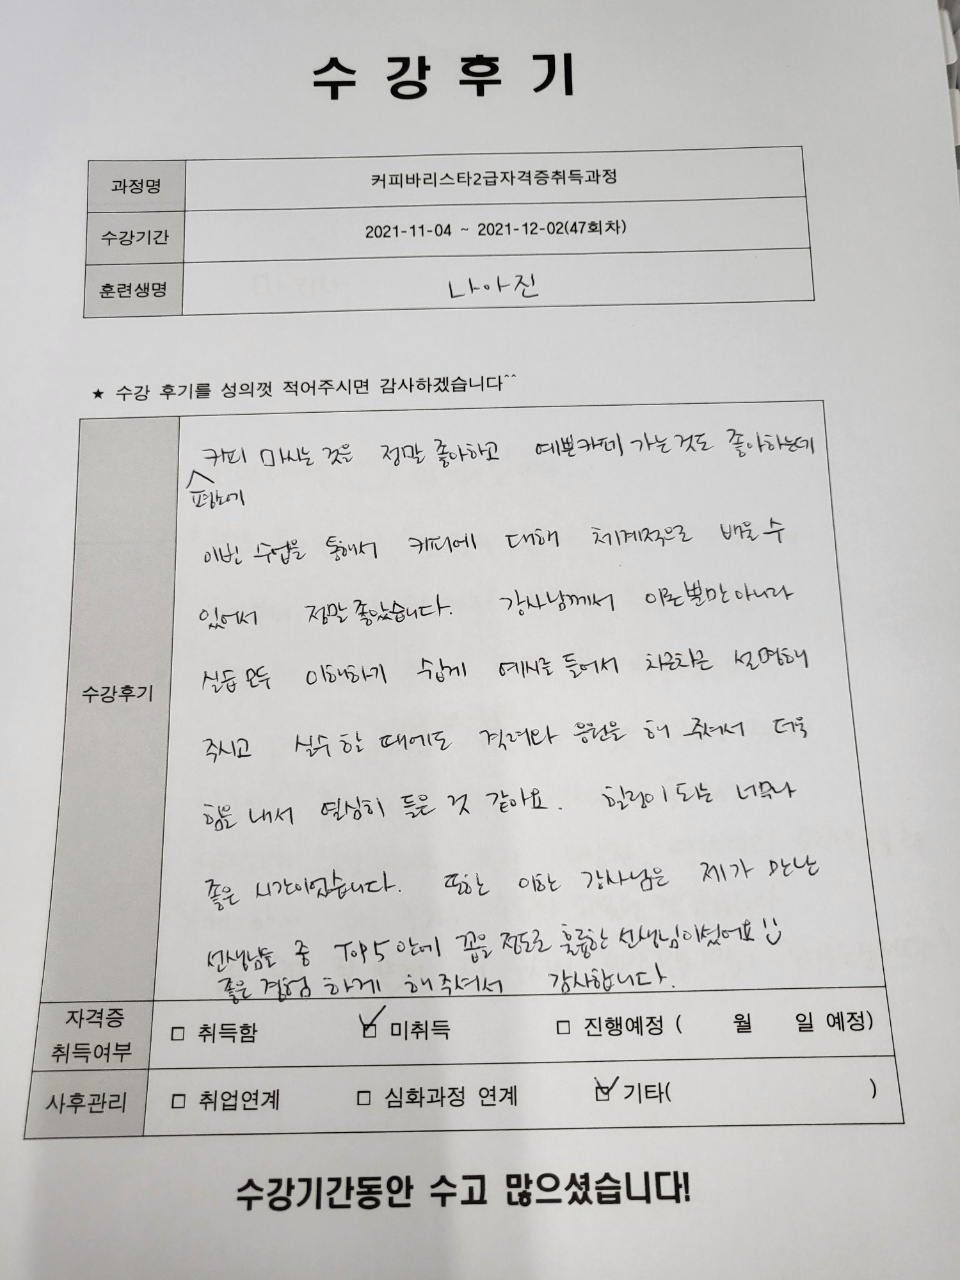 수 강 후 기
과정명 커피바리스타2급자격증취득과정
수강기간 2021-11-04 ~ 2021-12-02(47회차)
훈련생명 나아진
★ 수강 후기를 성의껏 적어주시면 감사하겠습니다^^
수강후기
커피 마시는 것을 정말 좋아하고 예쁜카페 가는것도 좋아하는데
평소에
이번 수업을 통해서 커피에 대해 체계적으로 배울 수
있어서 정말 좋았습니다. 강사님께서 이론뿐만아니라
실습 모두 이해하기 쉽게 예시를 들어서 차근차근 설명해
주시고 실수 할 때에도 격려와 응원을 해 주셔서 더욱
힘을 내서 열심히 들은 것 같아요. 힐링이 되는 너무나
좋은 시간이었습니다. 또한 이한 강사님은 제가 만난
선생님들 중 TOP5 안에 꼽을 정도로 훌륭한 선생님이셨어요
좋은 경험 하게 해주셔서 감사합니다.
자격증 취득여부 □ 취득함 ☑ 미취득 □ 진행예정 ( 월 일 예정)
사후관리 □ 취업연계 □ 심화과정 연계 ☑ 기타( )
수강기간동안 수고 많으셨습니다!